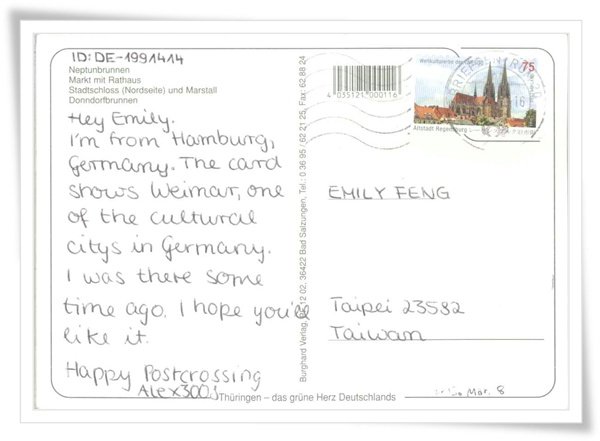 ID: DE-1991414
Neptunbrunnen
Markt mit Rathaus
Stadtschloss (Nordseite) und Marstall
Donndorfbrunnen
Hey Emily.
I'm from Hamburg,
Germany. The card
shows Weimar, one
of the cultural
citys in Germany.
I was there some
time ago. I hope you'll
like it.
Happy Postcrossing
Thüringen – das grüne Herz Deutschlands
12 02, 36422 Bad Salzungen, Tel.: 0 36 95 / 62 21 25, Fax: 62 88 24
Burghard Verlag,
4 035121 000116
75
Altstadt Regensburg
BRIEFZENTRUM
16
EMILY FENG
Taipei 23582
Taiwan
Mar. 8